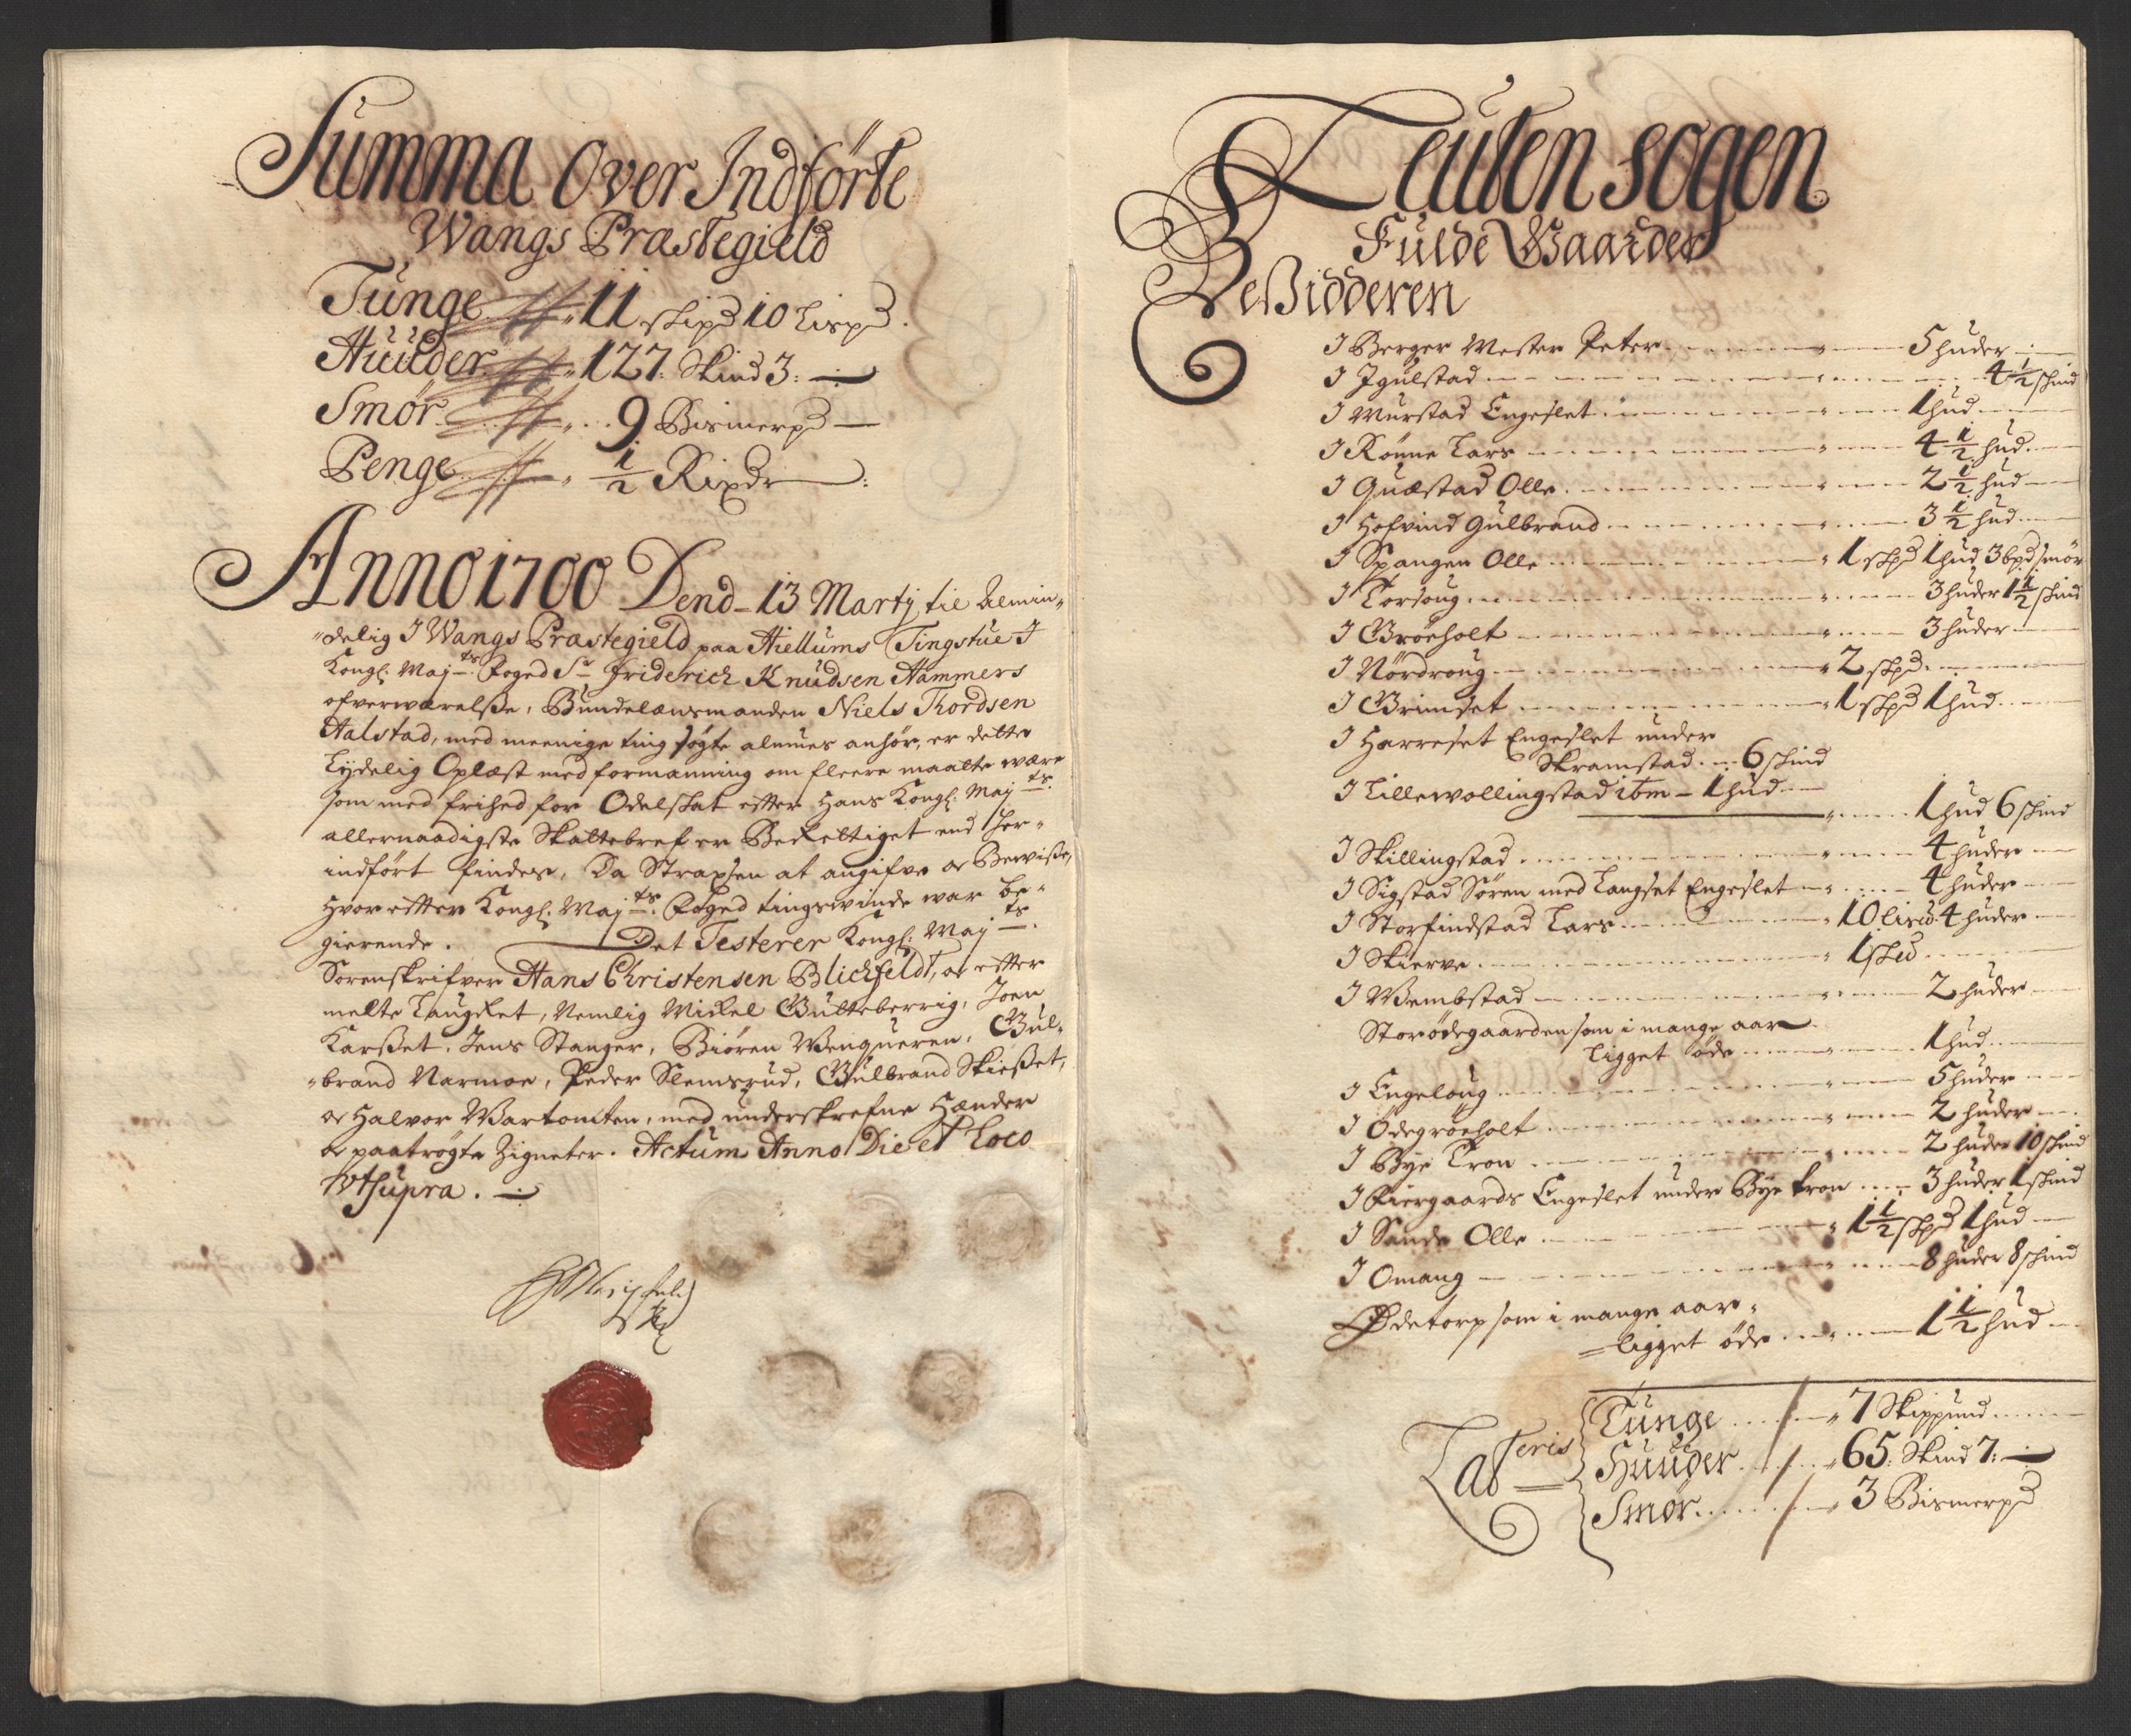 Summa Over Indförte
Wangs Præstegield
Tunge 11 skip℔ 10 Lisp℔.
Huuder 127. Skind 3.
Smör 9 Bismerp℔
Penge ½ Rixdr
Anno 1700 Dend 13 Martij, til Almin-
delig J Wangs Præstegield paa Hiellums Tingstue J
Kongl. Maj.ts Foged Sr Friderich Knudsen Hammers
ofverwærelsse, Bundelænsmanden Niels Thordsen
Aalstad, med meenige ting søgte almues anhör, er dette
Lydelig Oplæst med formanning om fleere maatte wære
som med frihed for Odelskat effter Hans Kongl. Maj.ts
allernaadigste Skattebref er Berettiget end her-
indført findes, Da Straxsen at angifve oc Bewisse,
Hvor effter Kongl. Maj.ts Foged tingswinde war be-
gierende. Det Testerer Kongl. Maj.ts
Sorenskrifver Hans Christensen Blichfeldt, oc effter
melte Laugret, Nemlig Mickel Gulteberrig, Joen
Karsset, Jens Stanger, Biören Wenqueren, Gul-
brand Narmoe, Peder Slemsrud, Gulbrand Skiesset,
oc Halvor Wartomten, med underskrefne Hænder
oc paatrögte Zigneter. Actum Anno Die et Loco
Ut supra.
Leuten sogen
Fulde Gaarder
Besidderen
J Berger Wester Peter 5 huder
J Jgulstad 4½ skind
J Murstad Engeslet 1 hud
J Rönne Lars 4½ hud
J Quæstad Olle 2½ hud
J Hofvind Gulbrand 3½ hud
J Spangen Olle 1 skp℔ 1 hud 3 bp℔ smör
J Torsoug 3 huder 1½ skind
J Gröeholt 3 huder
J Nördroug 2 skp℔.
J Grimset 1 skp℔ 1 hud
J Harreset Engeslet under
Skramstad 6 skind
J Lillewollingstad itm 1 hud
1 hud 6 skind
J Skillingstad 4 huder
J Sigstad Sören med Langset Engeslet 4 huder
J Storfindstad Lars 10 Lis℔. 4 huder
J Skierve 1 sk℔
J Wembstad 2 huder
Storödegaarden som i mange aar
ligget öde 1 hud
J Engeloug 5 huder
J Ödegröeholt 2 huder
J Bye Tron 2 huder 10 skind
J Kiergaards Engeslet under Bye tron 3 huder 1 skind
J Sande Olle 1½ skp℔ 1 hud
J Omang 8 huder 8 skind
Ødetorp som i mange aar
ligget öde 1½ hud
Lateris
Tunge 7 Skippund
Huuder 65. Skind 7.
Smør 3 Bismerp℔